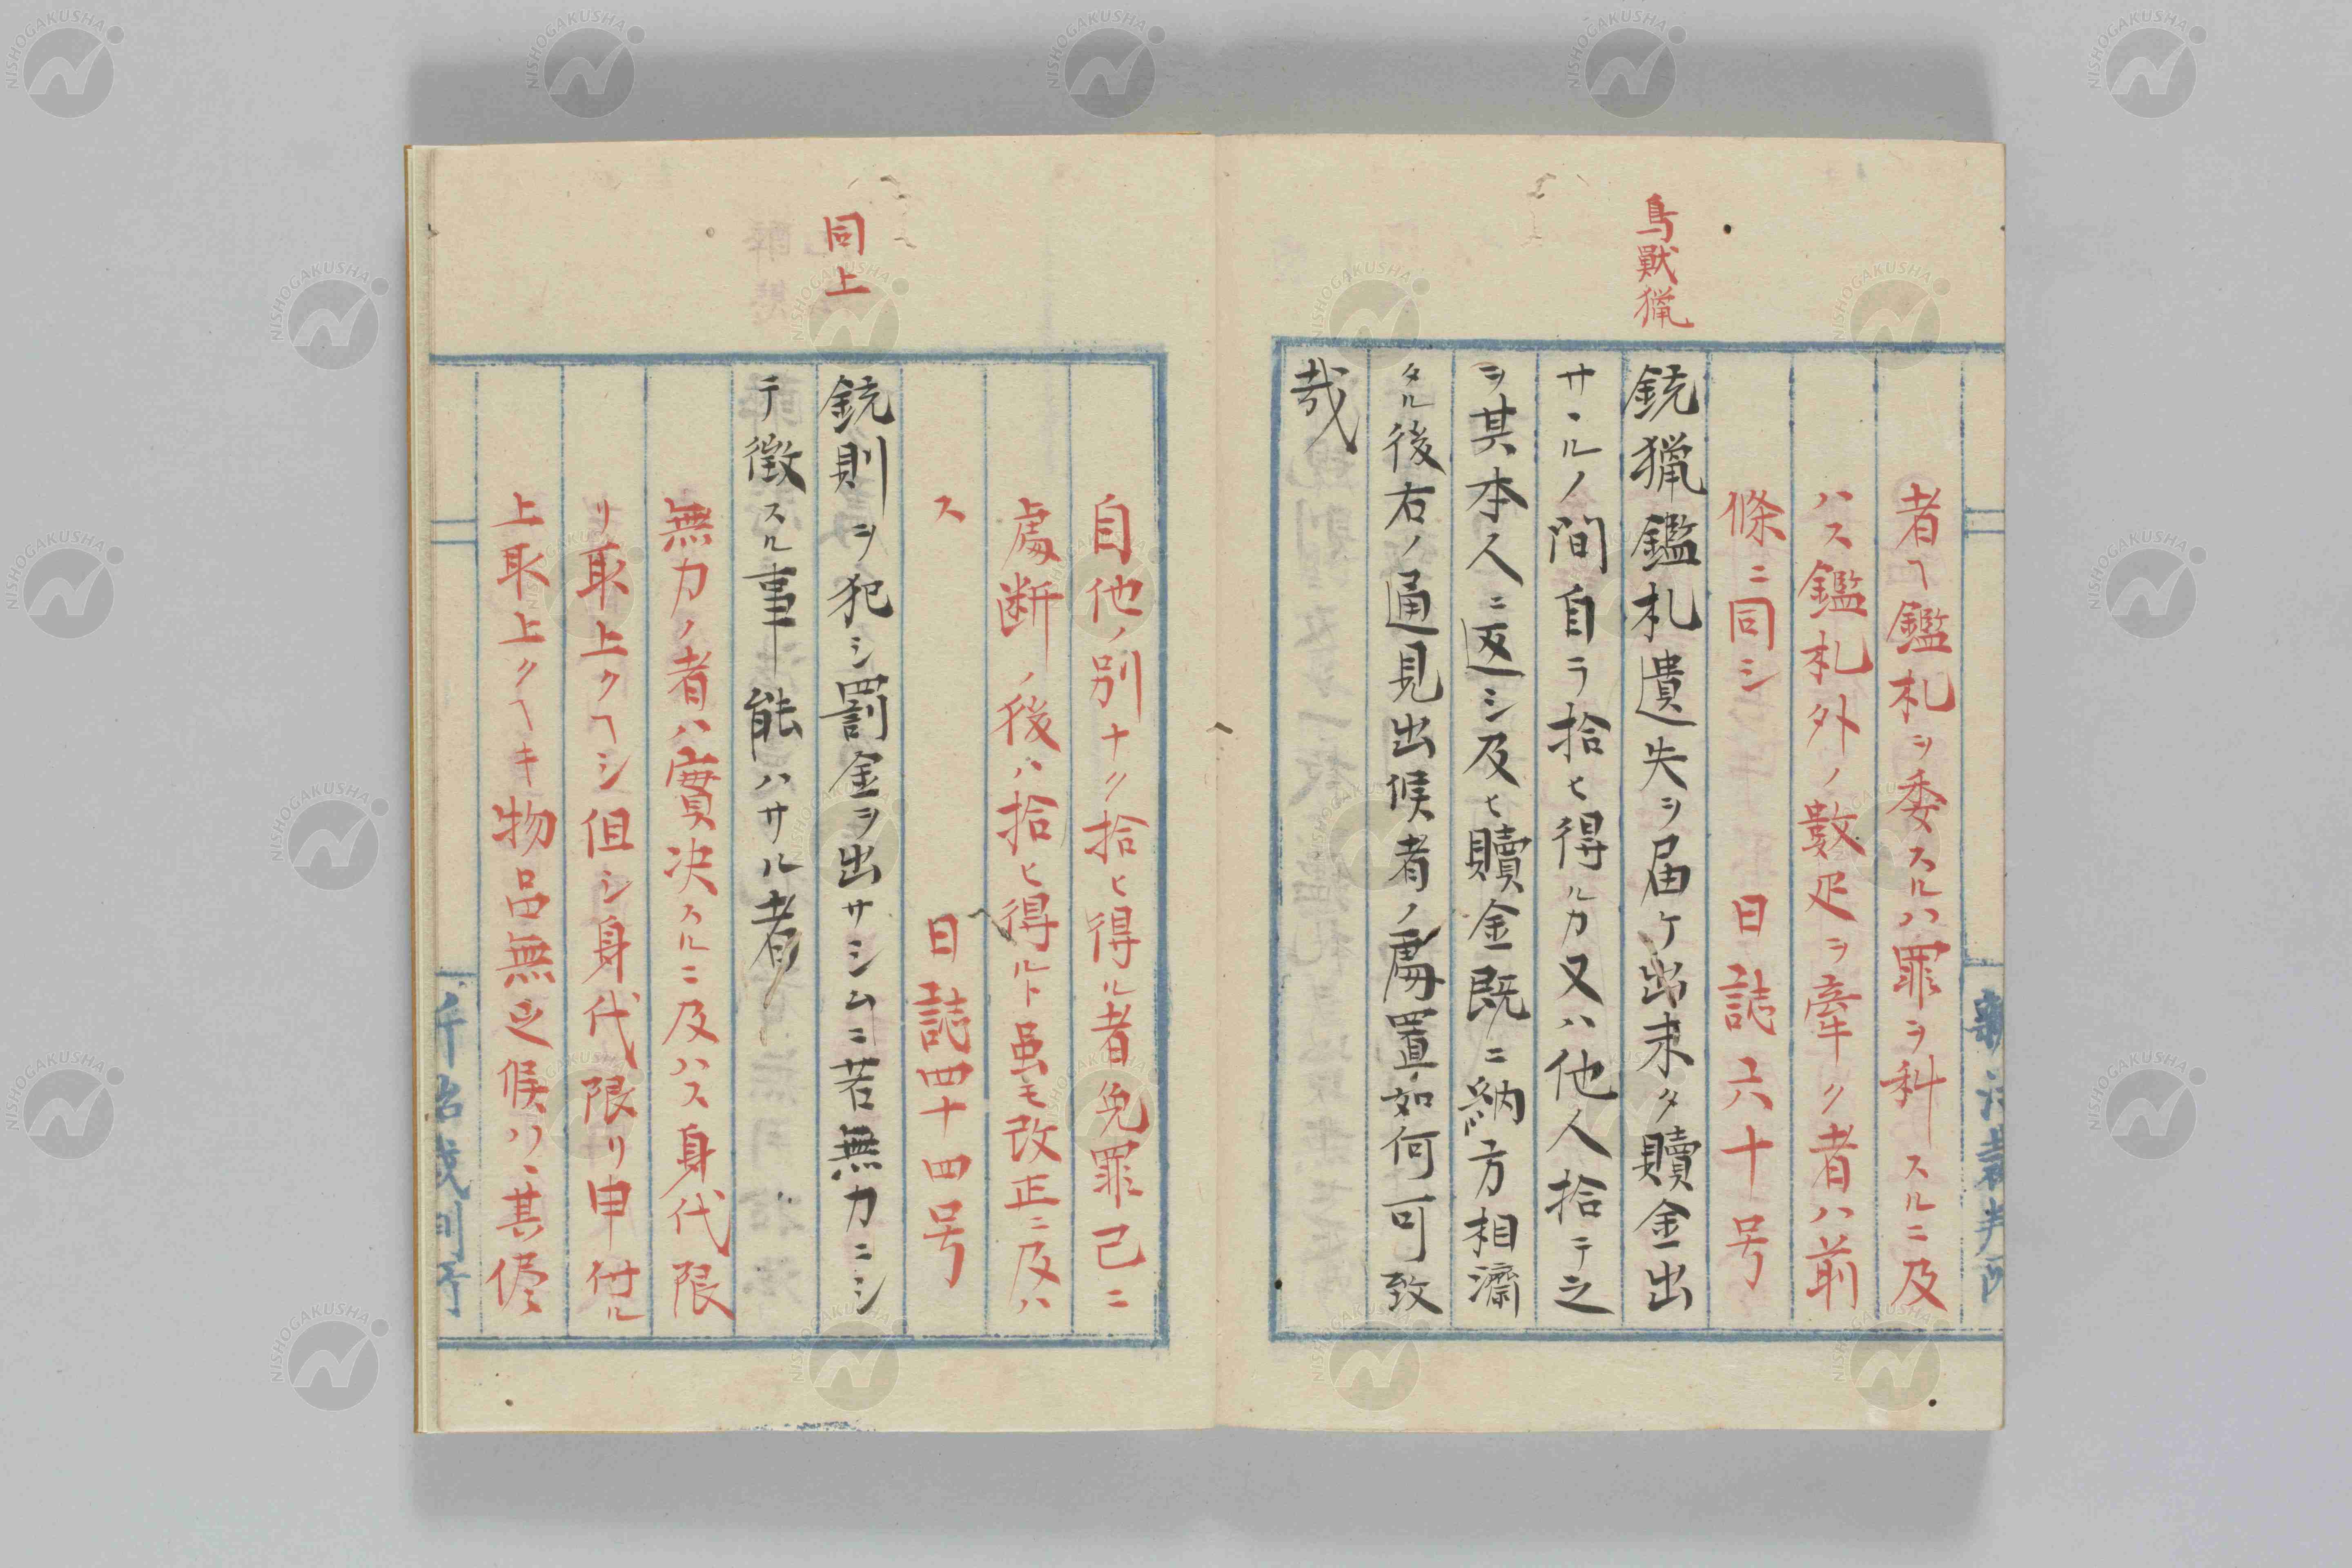 鳥獸猟
者ヘ鑑札ヲ委スルハ罪ヲ科スルニ及
ハス鑑札外ノ數疋ヲ牽ク者ハ前
條ニ同シ 日誌六十号
銃猟鑑札遺失ヲ届ケ出未タ贖金出
サヽルノ間自ラ拾ヒ得ルカ又ハ他人拾テ之
ヲ其本人ニ返シ及ヒ贖金既ニ納方相濟
タル後右ノ通見出候者ノ處置如何可致
哉
新治裁判所
同上
自他ノ別ナク拾ヒ得ル者免罪己ニ
處断ノ後ハ拾ヒ得ルト虽モ改正ニ及ハ
ス 日誌四十四号
銃則ヲ犯シ罰金ヲ出サシムニ若無力ニシ
テ徴スル事能ハサル者
無力ノ者ハ實决スルニ及ハス身代限
リ取上クヘシ但シ身代限リ申付ル
上取上クヘキ物品無之候ハヽ其侭
新治裁判所
NISHOGAKUSHA